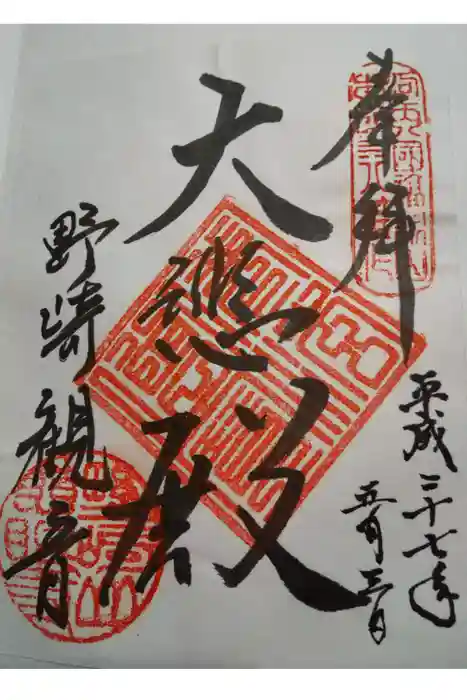 奉拝
平成二十七年
五月三日
大悲殿
野崎観音